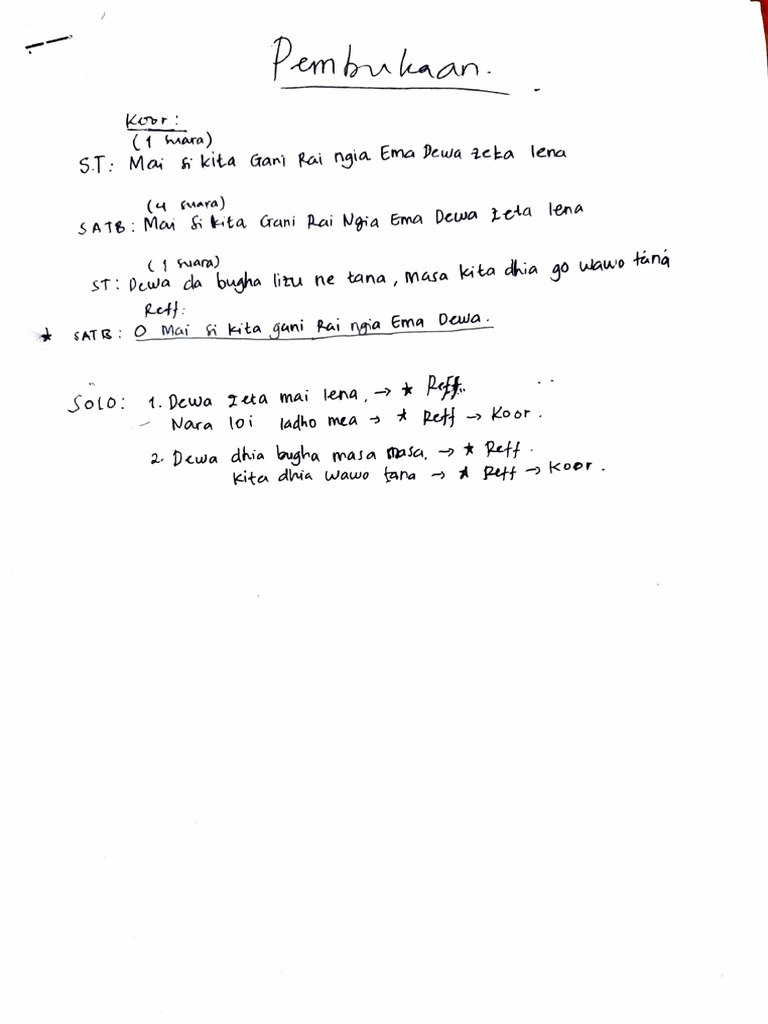 Pembukaan.
Koor:
(1 suara)
S.T: Mai si kita Gani Rai ngia Ema Dewa zeta lena
(4 suara)
SATB: Mai si kita Gani Rai Ngia Ema Dewa zeta lena
(1 suara)
ST: Dewa da bugha lizu ne tana, masa kita dhia go wawo táná
Reff:
★ SATB: O Mai si kita gani Rai ngia Ema Dewa.
SOLO: 1. Dewa zeta mai lena, → ★ Reff..
- Nara loi ladho mea → ★ Reff → Koor.
2. Dewa dhia bugha masa masa. → ★ Reff.
kita dhia wawo tana → ★ Reff → Koor.